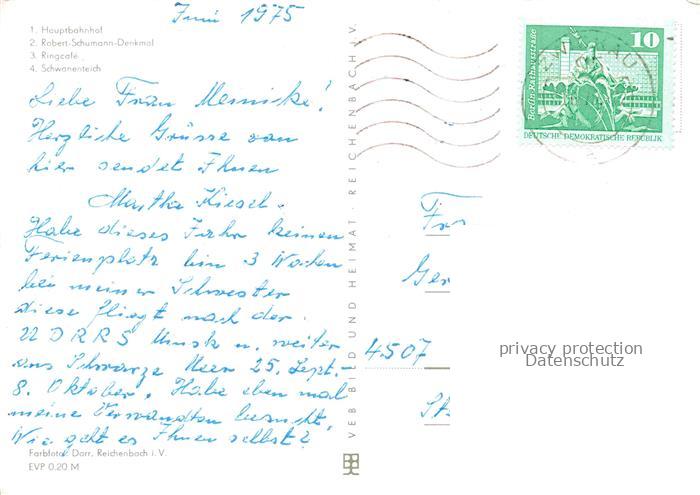 Juni 1975
1. Hauptbahnhof
2. Robert-Schumann-Denkmal
3. Ringcafé
4. Schwanenteich
Liebe Frau Meinicke!
Herzliche Grüsse von
hier sendet Ihnen
Martha Kiesel.
Habe dieses Jahr keinen
Ferienplatz bin 3 Wochen
bei meiner Schwester
diese fliegt nach der
Minsk u. weiter
ans Schwarze Meer 25. Sept.-
8. Oktober. Habe eben mal
meine Verwandten besucht.
Wie geht es Ihnen selbst?
Farbfotos Darr, Reichenbach i. V.
EVP 0.20 M
VEB BILD UND HEIMAT · REICHENBACH I. V.
Berlin, Rathausstraße
10
DEUTSCHE DEMOKRATISCHE REPUBLIK
ZWICKAU
Fra
Ger
4507
St
privacy protection
Datenschutz